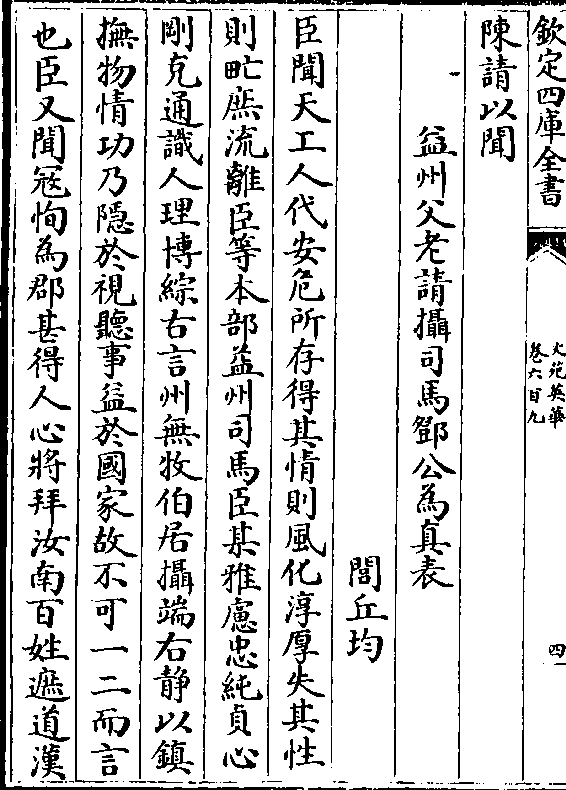 欽定四庫全書
文苑英華
卷六百九
四
陳請以聞
益州父老請攝司馬鄧公為真表
閭丘均
臣聞天工人代安危所存得其情則風化淳厚失其性
則甿庶流離臣等本部益州司馬臣某雅慮忠純貞心
剛克通識人理博綜右言州無牧伯居攝端右靜以鎮
撫物情功乃隱於視聽事益於國家故不可一二而言
也臣又聞冦恂為郡甚得人心將拜汝南百姓遮道漢